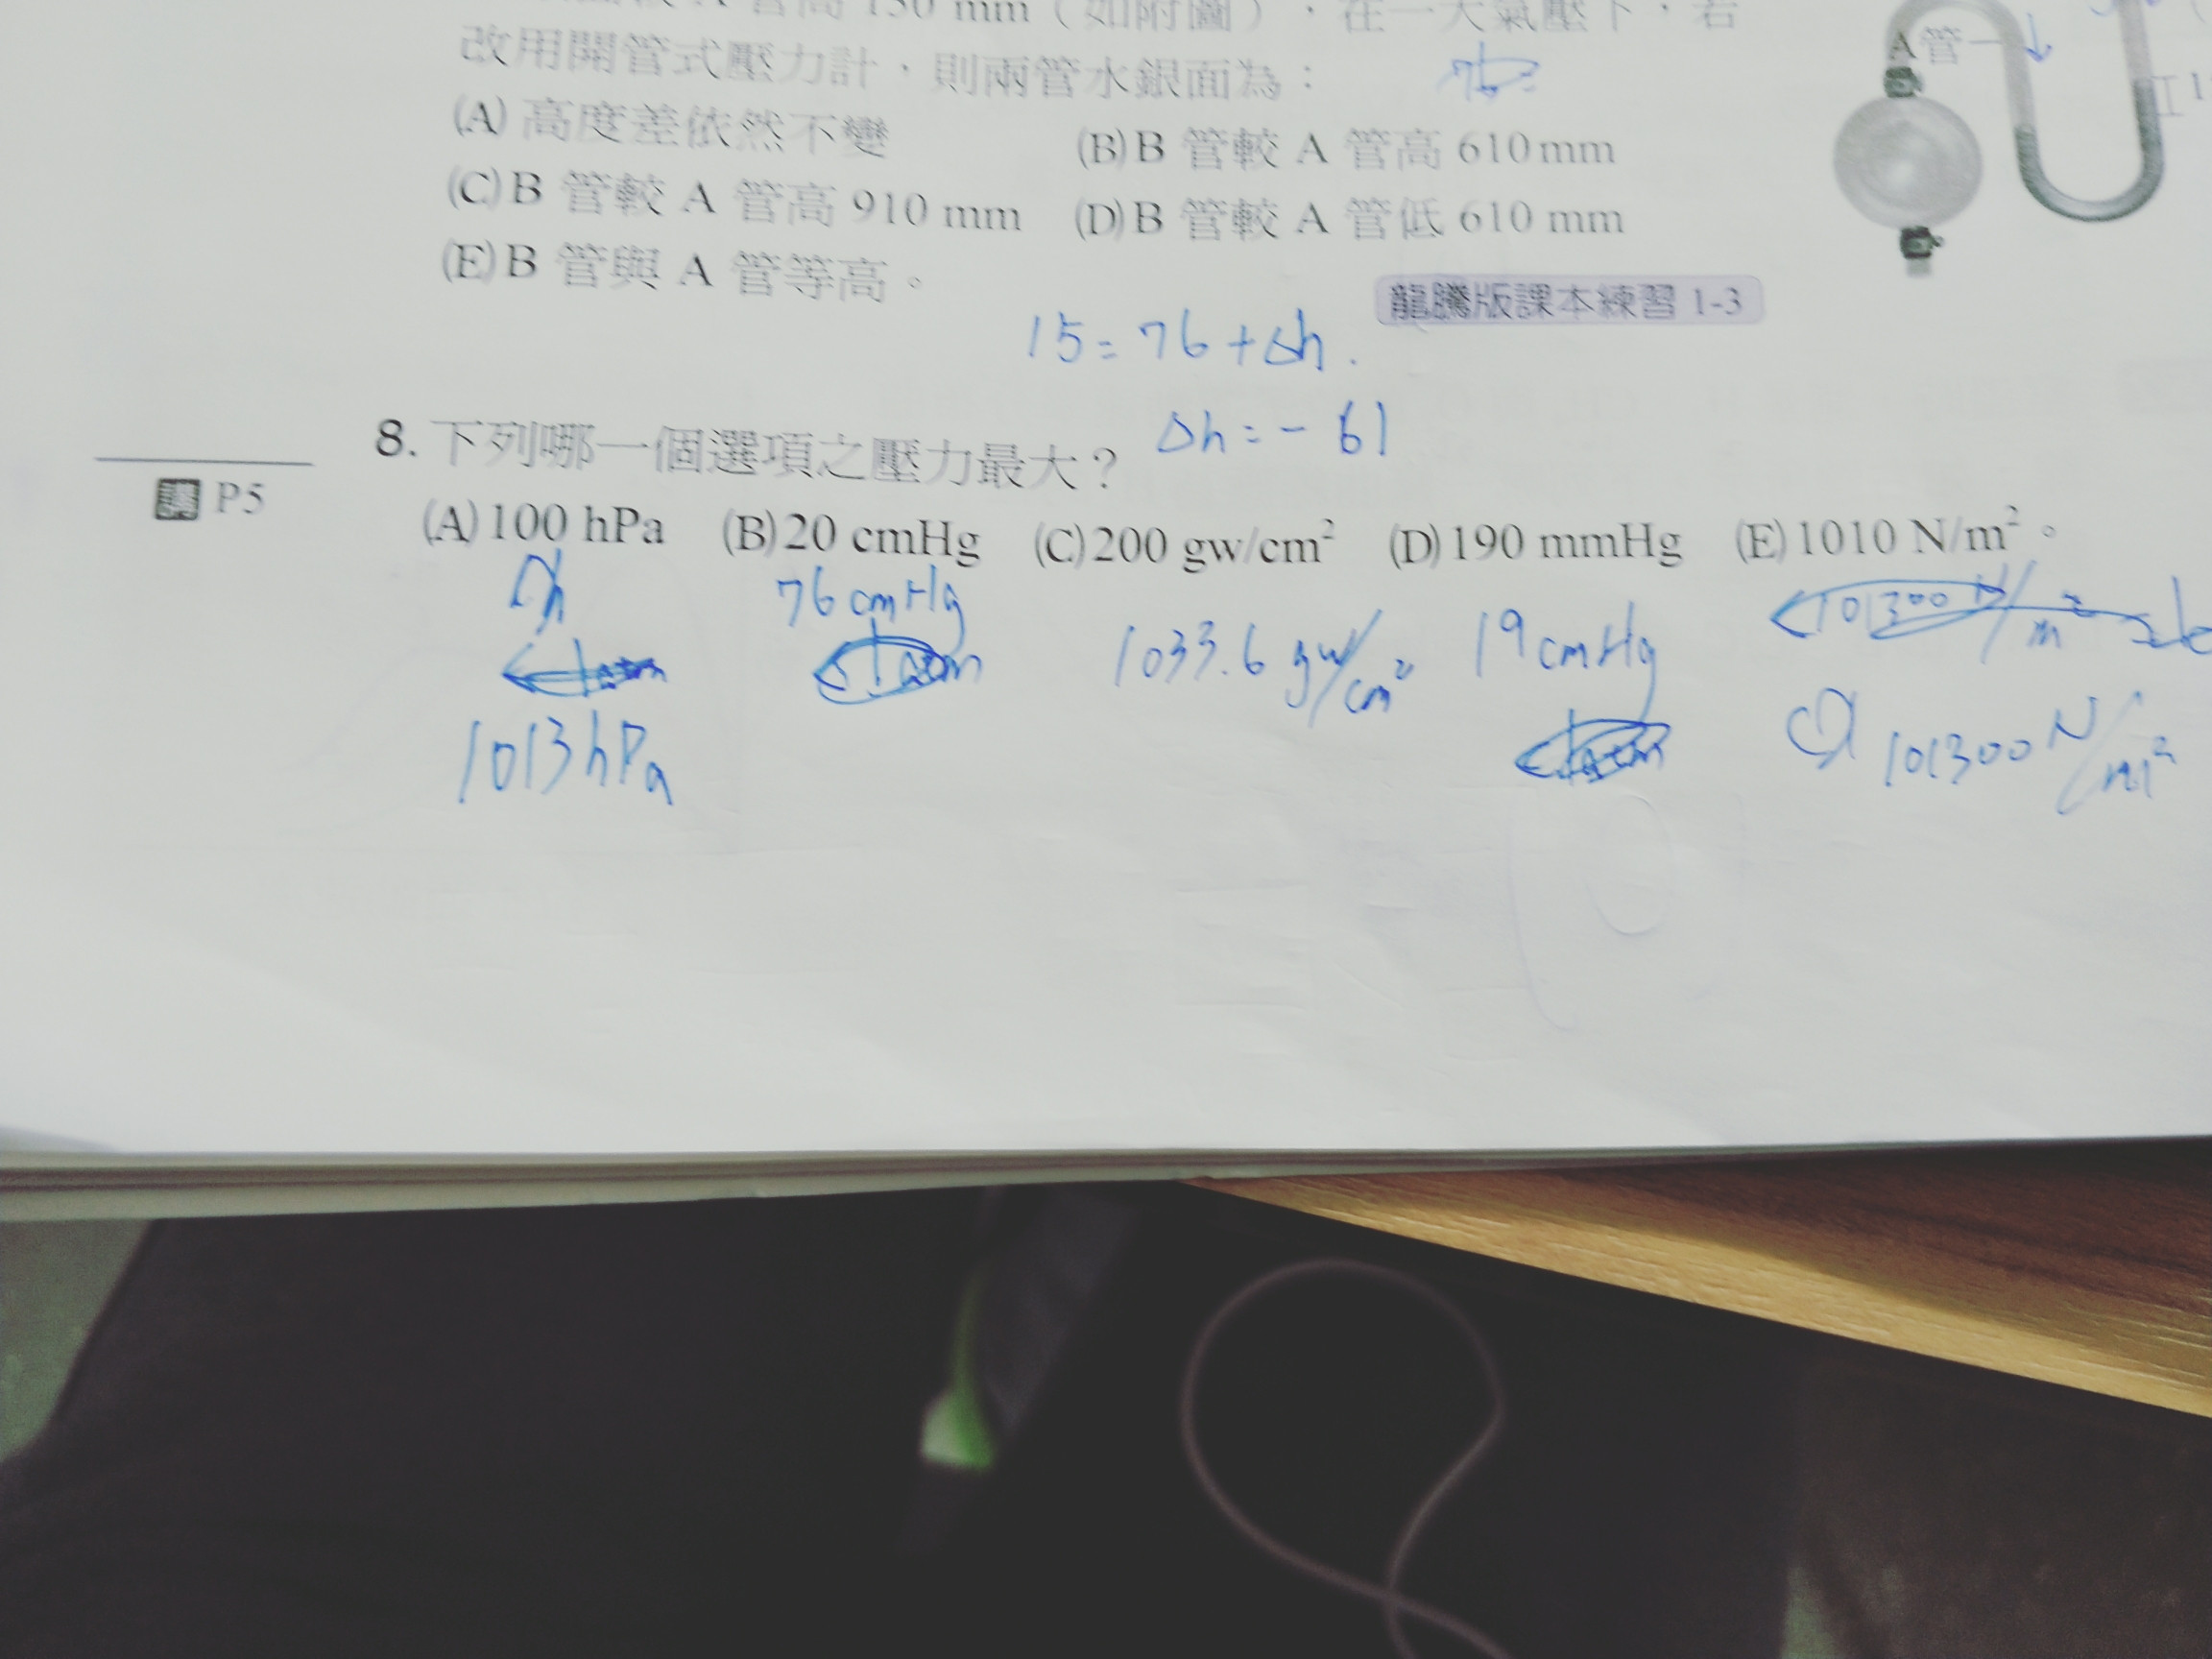 管高 150 mm（如附圖），在一大氣壓下，若
改用開管式壓力計，則兩管水銀面為：
(A) 高度差依然不變 (B) B 管較 A 管高 610 mm
(C) B 管較 A 管高 910 mm (D) B 管較 A 管低 610 mm
(E) B 管與 A 管等高。
A管
龍騰版課本練習 1-3
15 = 76 + Δh.
Δh = - 61
8. 下列哪一個選項之壓力最大？
講 P5
(A) 100 hPa (B) 20 cmHg (C) 200 gw/cm² (D) 190 mmHg (E) 1010 N/m²。
76 cmHg
1033.6 gw/cm²
19 cmHg
101300 N/m²
1013 hPa
101300 N/m²